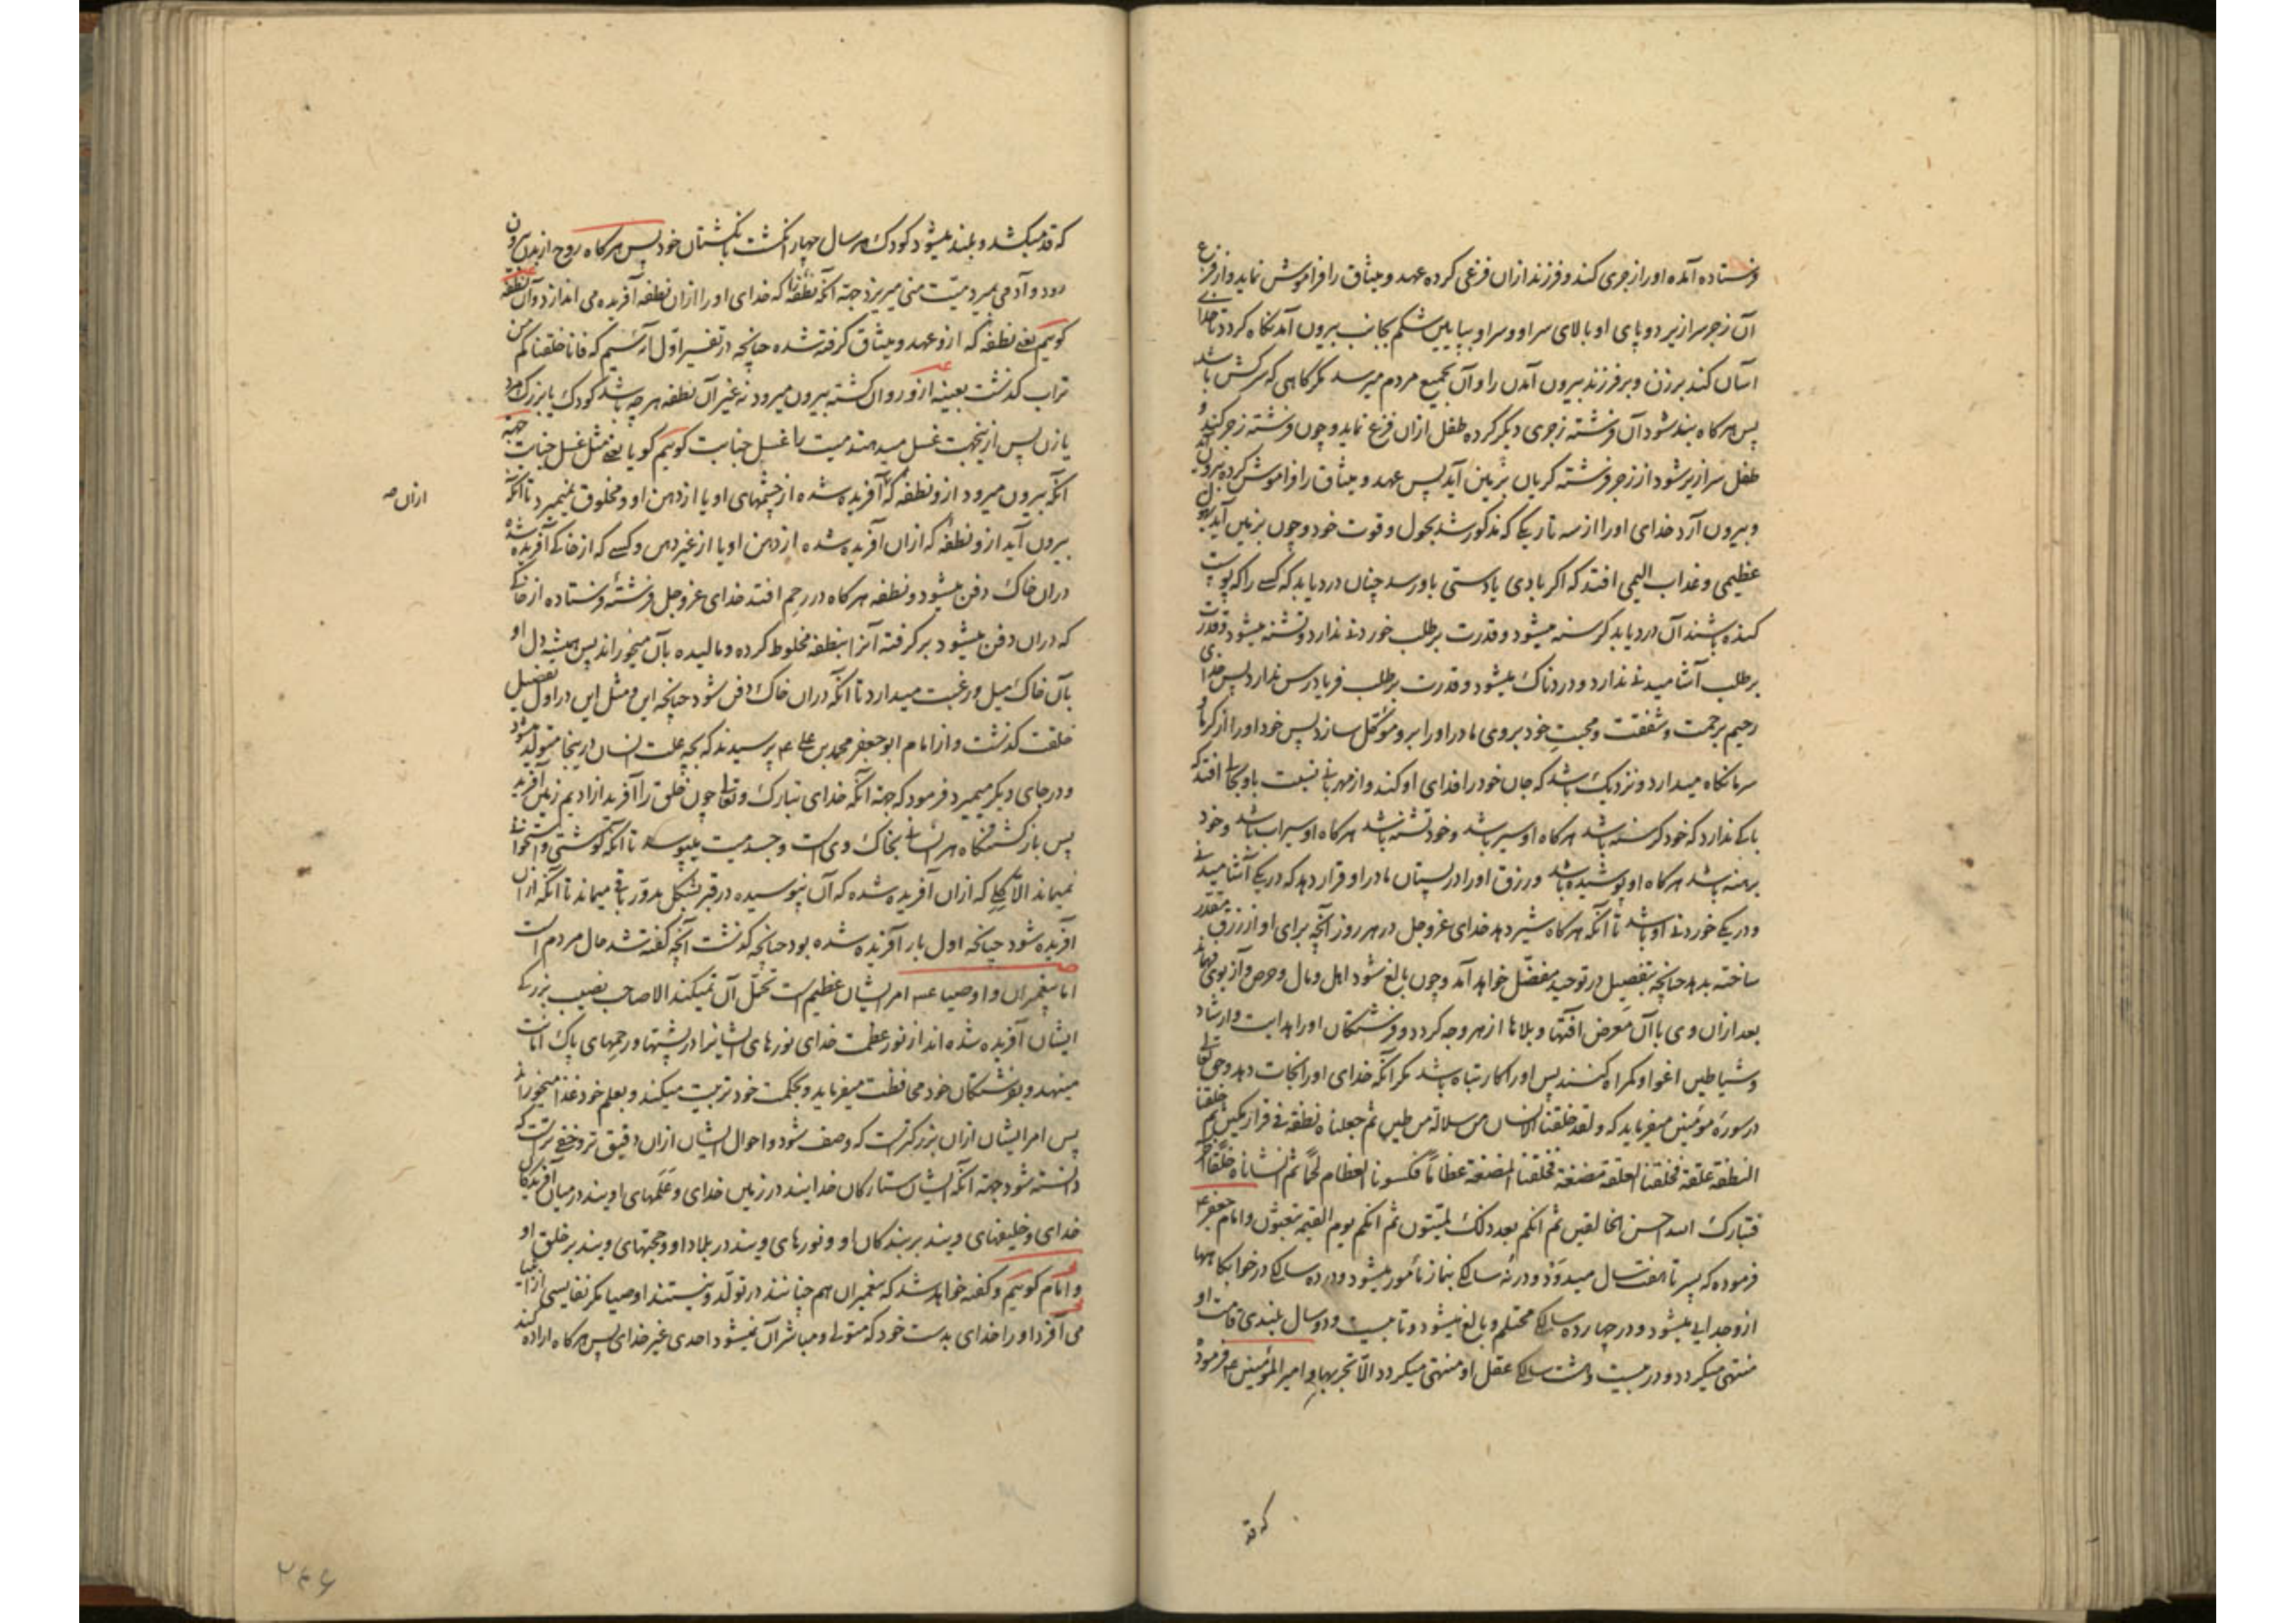 فرستاده آمده او را زجری کند و فرزند ازان فزعی کرده عهد و میثاق را فراموش نماید و از فزع
آن زجر سرازیر دو پای او بالای سر او و سر او بپایین شکم بجانب بیرون آمد نکاه کردد تا خدای
آسان کند بر زن و بر فرزند بیرون آمدن را و آن بجمیع مردم میرسد مکر کاهی که سرکش باشد
پس هر کاه بند شود آن فرشته زجری دیکر کرده طفل ازان فزع نماید و چون فرشته زجر کند و
طفل سرازیر شود از زجر فرشته کریان بزمین آید پس عهد و میثاق را فراموش کرده بیرون آید
و بیرون آرد خدای او را از سه تاریکی که مذکور شد بحول و قوت خود و چون بزمین آید بهول
عظیمی و عذاب الیمی افتد که اکر بادی یا دستی باو رسد چنان درد یابد که کسی را که پوست
کنده باشند آن درد یابد کرسنه میشود و قدرت بر طلب خوردنی ندارد و تشنه میشود و قدرت
بر طلب آشامیدنی ندارد و دردناک میشود و قدرت بر طلب فریادرس ندارد پس خدای
رحیم برحمت و شفقت و محبت خود بروی مادر او را برو مؤکل سازد پس خود او را از کرما و
سرما نکاه میدارد و نزدیک باشد که جان خود را فدای او کند و از مهربانی نسبت باو بحالی افتد که
باکی ندارد که خود کرسنه باشد هر کاه او سیر باشد و خود تشنه باشد هر کاه او سیراب باشد و خود
برهنه باشد هر کاه او پوشیده باشد و رزق او را در پستان مادر او قرار دهد که در یکی آشامیدنی
و در یکی خوردنی او باشد تا آنکه هر کاه شیر دهد خدای عز و جل در هر روز آنچه برای او از رزق مقدر
ساخته بدهد چنانچه بتفصیل در توحید مفضل خواهد آمد و چون بالغ شود اهل و مال و حرص و آز بوی فهماند
بعد ازان وی با آن معرض آفتها و بلاها از هر وجه کردد و فرشتکان او را هدایت و ارشاد
و شیاطین اغوا و کمراه کنند پس او را کار تباه باشد مکر آنکه خدای او را نجات دهد و حق تعالی
در سورهٔ مؤمنین میفرماید که و لقد خلقنا الانسان من سلالة من طین ثم جعلناه نطفة فی قرار مکین ثم خلقنا
النطفة علقة فخلقنا العلقة مضغة فخلقنا المضغة عظاماً فکسونا العظام لحمًا ثم انشأناه خلقًا آخر
فتبارک الله احسن الخالقین ثم انکم بعد ذلک لمیتون ثم انکم یوم القیمة تبعثون و امام جعفر ع
فرموده که پسر تا هفت سال میدود و در نه سالکی بنماز مأمور میشود و در ده سالکی در خوابکاهها
ازو جدایی میشود و در چهارده سالکی محتلم و بالغ میشود و تا بیست و دو سال بلندی قامت او
منتهی میکردد و در بیست و هشت سالکی عقل او منتهی میکردد الا تجربها و امیر المؤمنین ع فرموده
که قد
که قد میکشد و بلند میشود کودک هر سال چهار انکشت بانکشتان خود پس هر کاه روح از بدن بیرون
رود و آدمی بمیرد میت منی میریزد جهة آنکه نطفه را که خدای او را ازان نطفه آفریده می اندازد و آن نطفه
کوییم یعنی نطفه که ازو عهد و میثاق کرفته شده چنانچه در تفسیر اول آیه کفتیم که فانا خلقناکم من
تراب کذشت بعینه ازو روان کشته بیرون میرود نه غیر آن نطفه هر چه باشد کودک یا بزرک مرد
یا زن پس ازینجهت غسل میدهند میت را غسل جنابت کوییم کویا یعنی مثل غسل جنابت جهة
آنکه بیرون میرود ازو نطفه که آفریده شده از چشمهای او یا از دهن او و مخلوق نمیمیرد تا آنکه
ازان صه
بیرون آید ازو نطفه که ازان آفریده شده از دهن او یا از غیر دهن و کسی که از خاکی آفریده شده
دران خاک دفن میشود و نطفه هر کاه در رحم افتد خدای عز و جل فرشتهٔ فرستاده از خاکی
که دران دفن میشود بر کرفته آنرا بنطفه مخلوط کرده و مالیده بآن میخوراند پس همیشه دل او
بآن خاک میل و رغبت میدارد تا آنکه دران خاک دفن شود چنانچه این و مثل این در اول تفصیل
خلقت کذشت و از امام ابو جعفر محمد بن علی ع پرسیدند که بچه علت انسان در ینجا متولد میشود
و در جای دیکر میمیرد فرمود که جهة آنکه خدای تبارک و تعالی چون خلق را آفرید از ادیم زمین آفرید
پس بازکشتنکاه هر انسانی بخاک وی است و جسد میت میپوسد تا آنکه کوشتی و استخوانی
نمیماند الا کلی که ازان آفریده شده که آن نپوسیده در قبر بشکل مدور باقی میماند تا آنکه ازان
آفریده شود چنانکه اول بار آفریده شده بود چنانچه کذشت آنچه کفته شد حال مردم است
اما پیغمبران و اوصیا عم امر ایشان عظیم است تحمل آن نمیکند الا صاحب نصیب بزرکی
ایشان آفریده شده اند از نور عظمت خدای نورهای ایشانرا در پشتها و رحمهای پاک امانت
مینهد و بفرشتکان خود محافظت میفرماید و بحکمت خود تربیت میکند و بعلم خود غذا میخوراند
پس امر ایشان ازان بزرکتر است که وصف شود و احوال ایشان ازان دقیق تر و خفی تر است که
دانسته شود جهة آنکه ایشان ستارکان خدایند در زمین خدای و علمهای اویند در میان آفریدکان
خدای و خلیفهای ویند بر بندکان او و نورهای ویند در بلاد او و حجتهای ویند بر خلق او
و امام کوییم و کفته خواهد شد که پیغمبران هم چنانند در تولد و نیستند اوصیا مکر نفایسی از انبیا
می آفرد او را خدای بدست خود که متولی و مباشر آن نمیشود احدی غیر خدای پس هر کاه اراده کند
۲۴۶